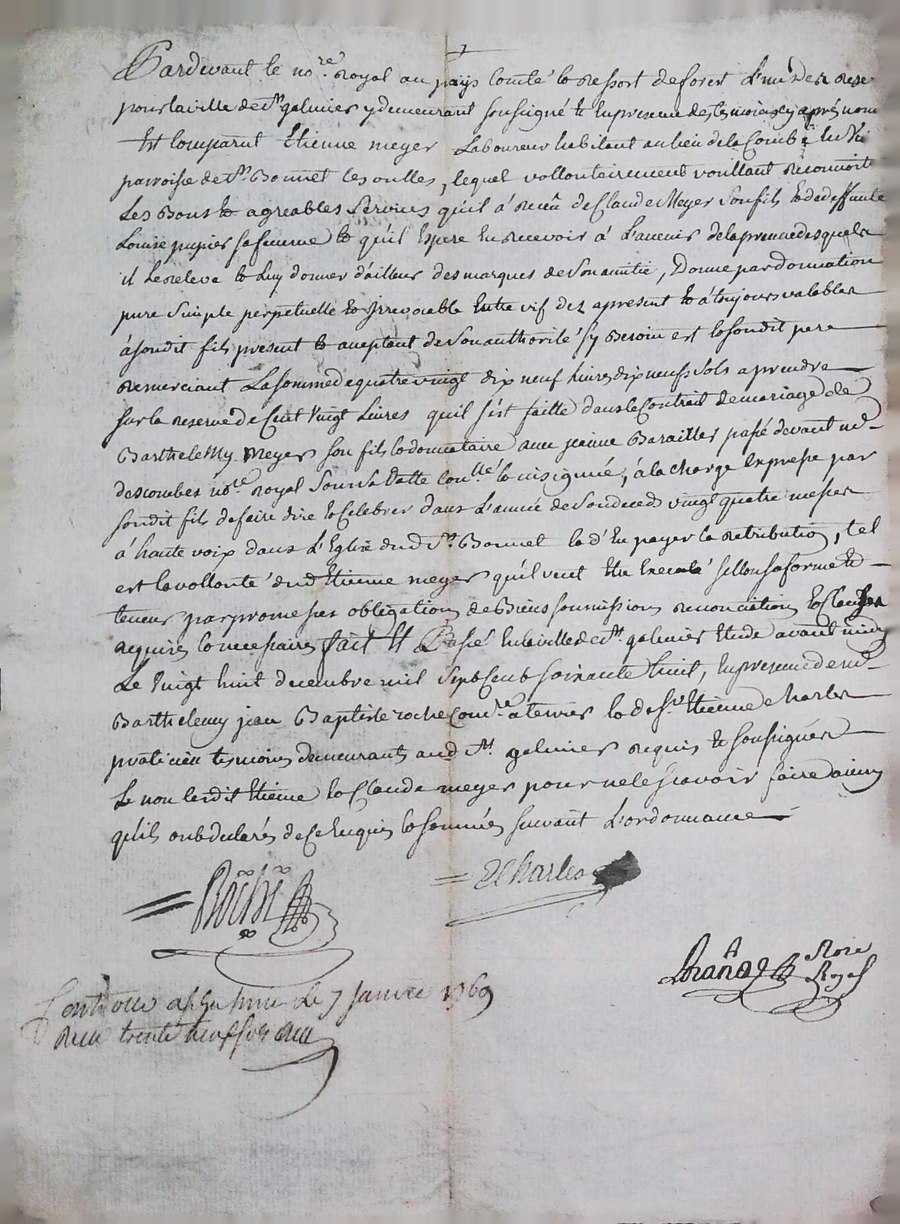 Pardevant le no.re Royal au pays Comté & Ressort de forest
pour la ville de St galmier y demeurant soussigné & En presence des temoins cy après nom
Est Comparut Etienne meyer Laboureur habitant au lieu de la Combe
parroisse de St Bonnet les oulles, lequel vollontairement voullant Reconnoitre
Les Bons & agreables Services qu'il a Receu de Claude Meyer Son fils & de deffunte
Louise pupier sa femme & qu'il Espere En recevoir à L'avenir de la preuve desquels
il Le releve & Luy donner d'ailleurs des marques de Son amitié, Donne par donnation
pure Simple perpetuelle & Irrevocable Entre vif dez apresent & à toujours valable
à sondit fils present & aceptant de Son authorité Sy Besoin est & sondit pere
Remerciant La somme de quatre vingt dix neuf livres dix neuf Sols a prendre
sur la reserve de Cent Vingt Livres quil s'est faitte dans le Contrait de mariage de
Barthelemy Meyer son fils & donnataire avec jeanne Barailler passé devant me
descombes no.re royal & insignué, à la charge Expresse par
sondit fils de faire dire & Celebrer dans L'année de Son deceds vingt quatre messes
à haute voix dans L'Eglise dud St Bonnet & d'En payer la retribution, tel
est la vollonté dud Etienne meyer qu'il veut Etre Executé sellon sa forme &
teneur par promesses obligation de Biens soumissions renonciation & Clauses
requises & necessaires fait Et Passé En la ville de St galmier Etude avant midy
Le Vingt huit decembre mil Sept Cent soixante huit, En presence de me
Barthelemy jean Baptiste roche Com.re a terrier & de Sr Etienne Charles
praticien temoins demeurants aud St galmier requis & soussignés
Et non lesdit Etienne & Claude meyer pour ne le sçavoir faire ainsy
qu'ils ont declarés de Ce Enquis & sommés suivant L'ordonnance
Roche
E Charles
No.re
Royal
Controllé à St galmier Le 7 janvier 1769
Reçu trente neuf sols